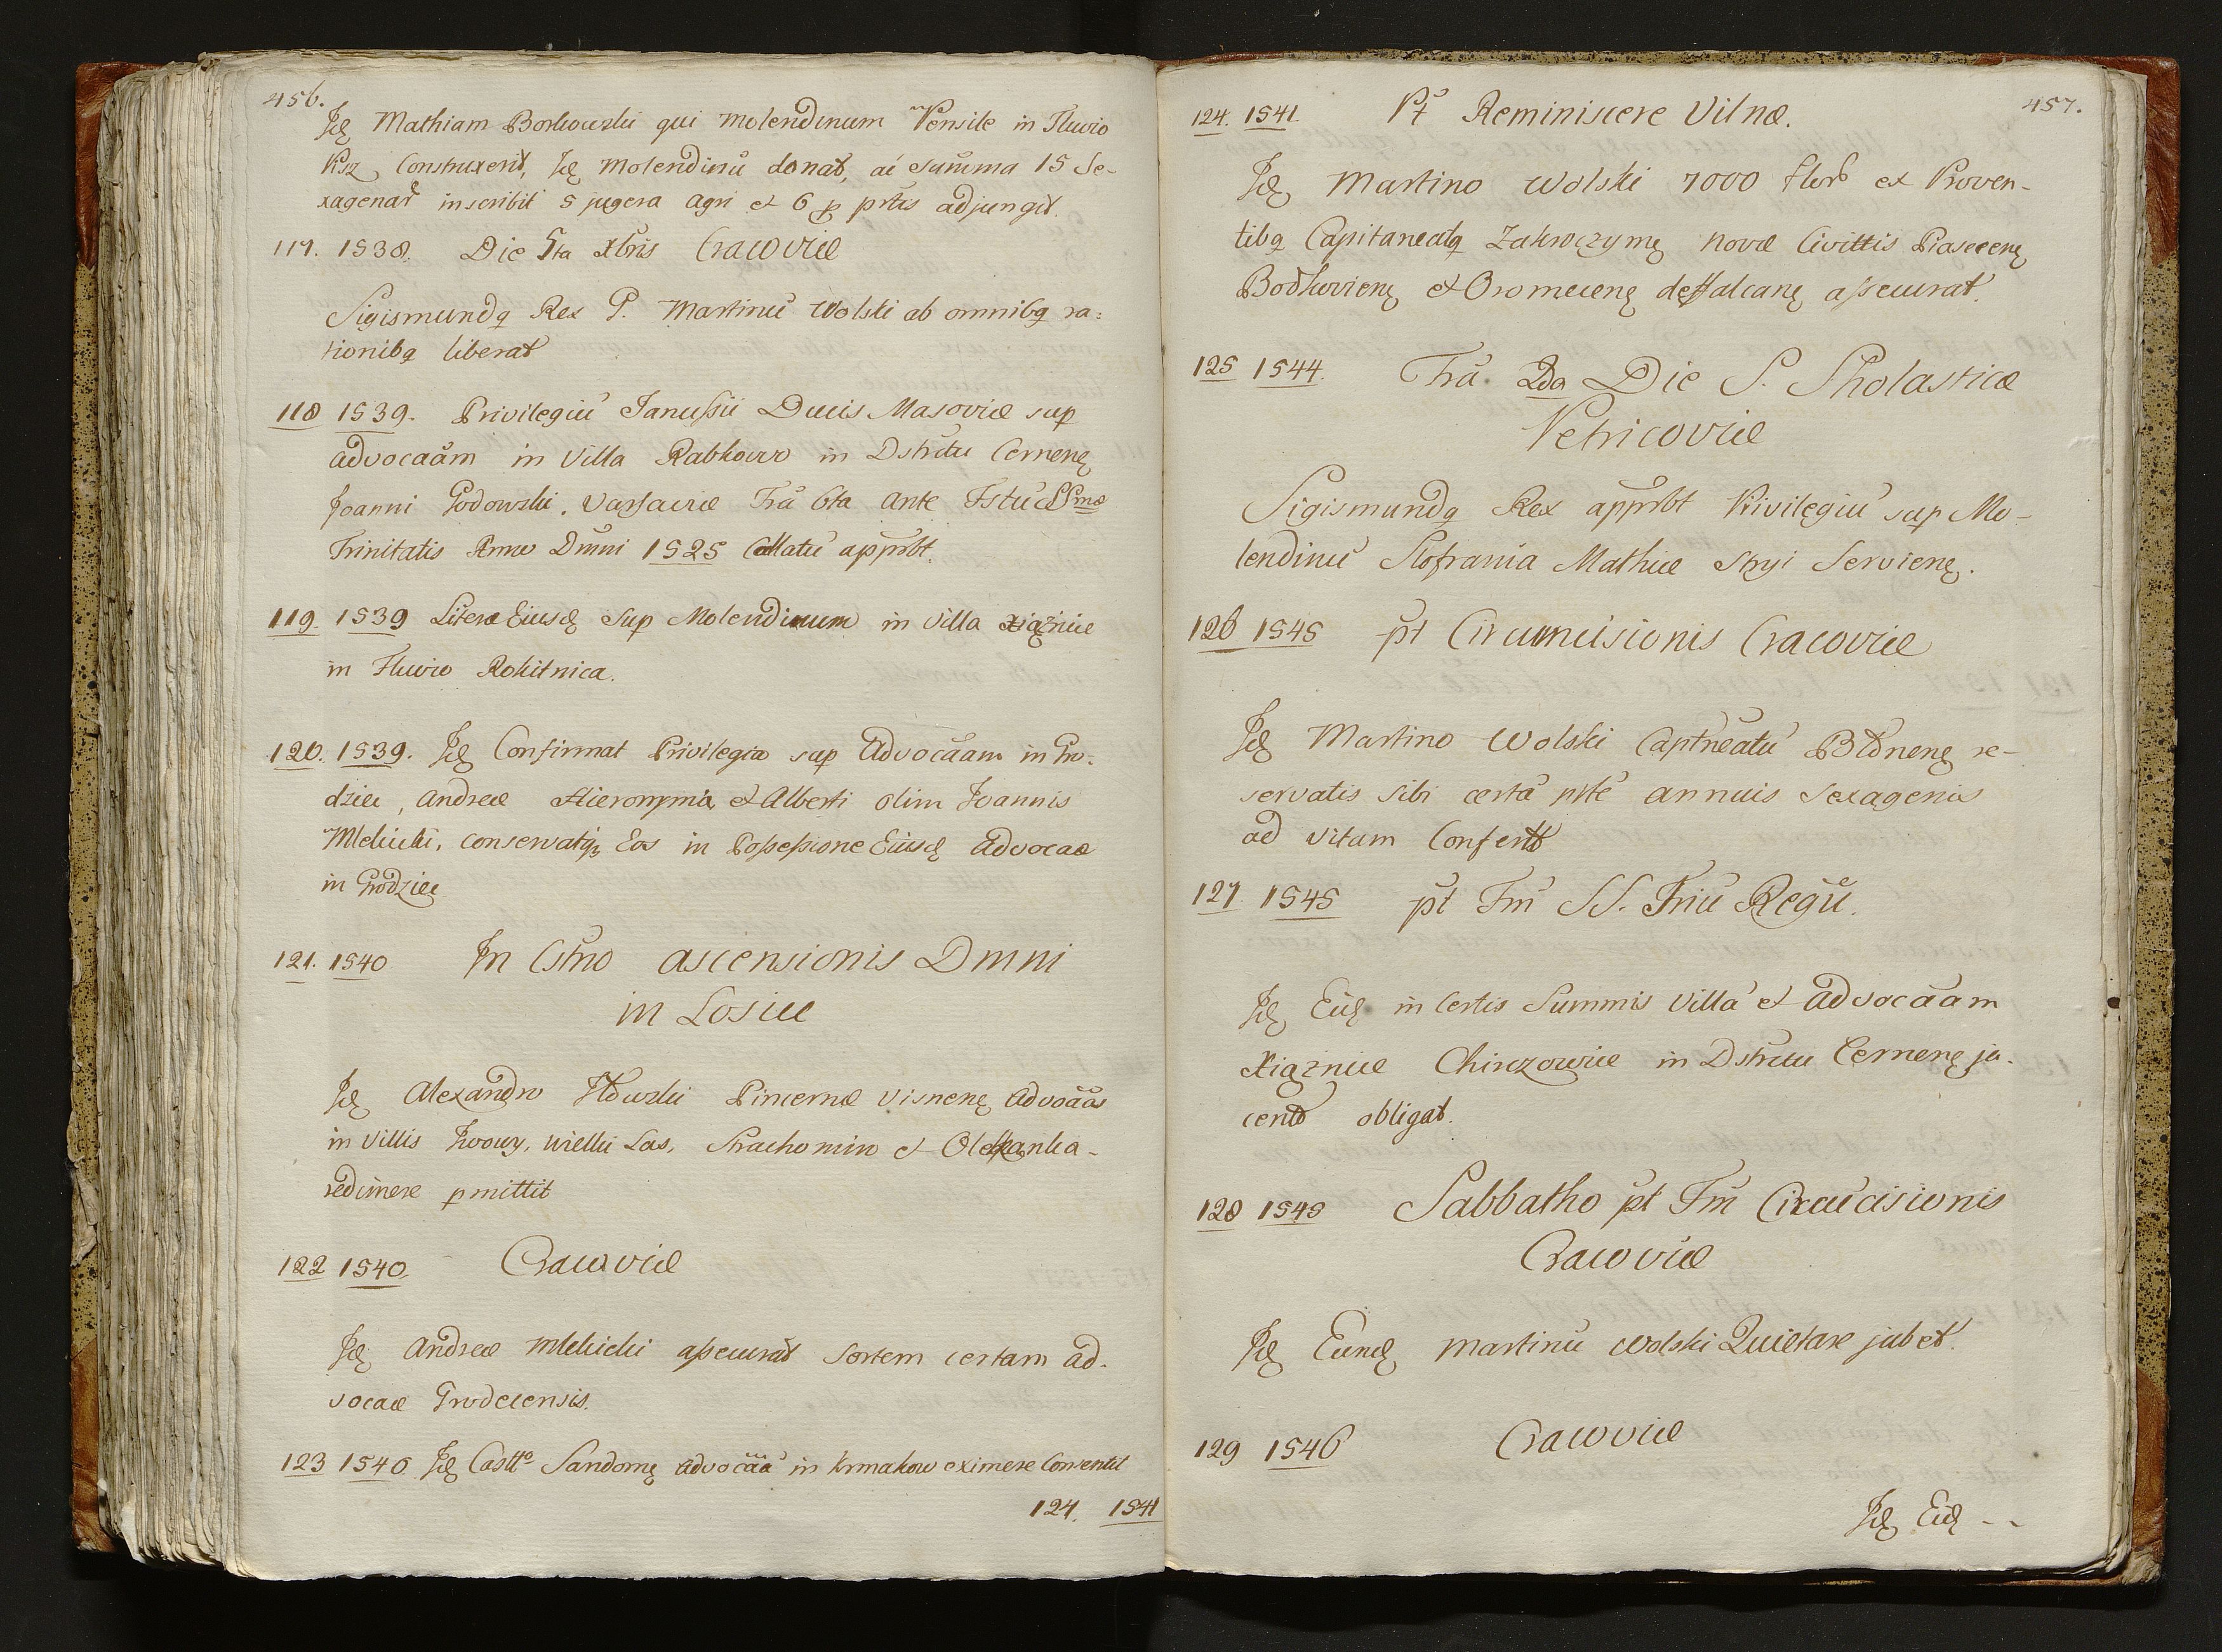 456.
Id Mathiam Borkowski qui Molendinum Pensile in Fluvio
Psz Construxerit, Id Molendinū donat, ac Summa 15 Se-
xagenar inscribit 5 jugera agri et 6 p prtis adjungit.
117. 1538. Die 5ta Xbris Cracoviæ
Sigismundq Rex P. Martinū Wolski ab omnibq ra=
tionibq liberat
118 1539. Privilegiū Janussii Ducis Masoviæ sup
advocaām in Villa Rabkowo in Dstrictu Cernenę
Joanni Godowski. Varsaviæ Fra 6ta ante Fstū SSmæ
Trinitatis Anno Dmni 1525 Collatū apprbt.
119. 1539 Literæ Eiusd Sup Molendinum in Villa Xiążnice
in Fluvio Rokitnica.
120. 1539. Id Confirmat Privilegia sup Advocāam in Gro-
dziec, Andreæ Hieronymi et Alberti olim Joannis
Mlekicki, conservatq Eos in Possessione Eiusd Advocaæ
in Grodziec
121. 1540 In Cstno ascensionis Dmni
in Losice
Id Alexandro Hdowski Pincernæ Visnenę Advoāas
in Villis Iwowy, Wielki Las, Strachomin et Oleksanka-
redimere pmittit
122 1540. Cracoviæ
Id Andreæ Mlekicki assecurat Sortem certam ad-
vocaæ Grodecensis.
123 1540 Id Castto Sandomę advocāā in Krmakow eximere Consentit
124. 1541
457.
124. 1541. Pt Reminiscere Vilnæ.
Id Martino Wolski 7000 flor ex Proven-
tibq Capitaneatq Zakroczymę Novæ Civittis Piasecenę
Bodkovienę et Oromecenę deffalcanę assecurat.
125 1544. Fra 2da Die S. Sholasticæ
Petricoviæ
Sigismundq Rex apprbt Privilegiū sup Mo-
lendinū Stofrania Mathiæ Stryi Servienę.
126 1545 pt Circumcisionis Cracoviæ
Id Martino Wolski Captneatū Błonenę re-
servatis sibi certā prtē annuis Sexagenis
ad vitam Confertt
127 1545 pt Fm SS. Triū Regū.
Id Eid in Certis Summis Villā et advocāam
Xiążnice Chinczowice in Dstrictu Cernenę ja-
centt obligat.
128 1545 Sabbatho pt Fm Circūcisionis
Cracoviæ
Id Eund Martinū Wolski Quietare jubet.
129 1546 Cracoviæ
Id Eid --